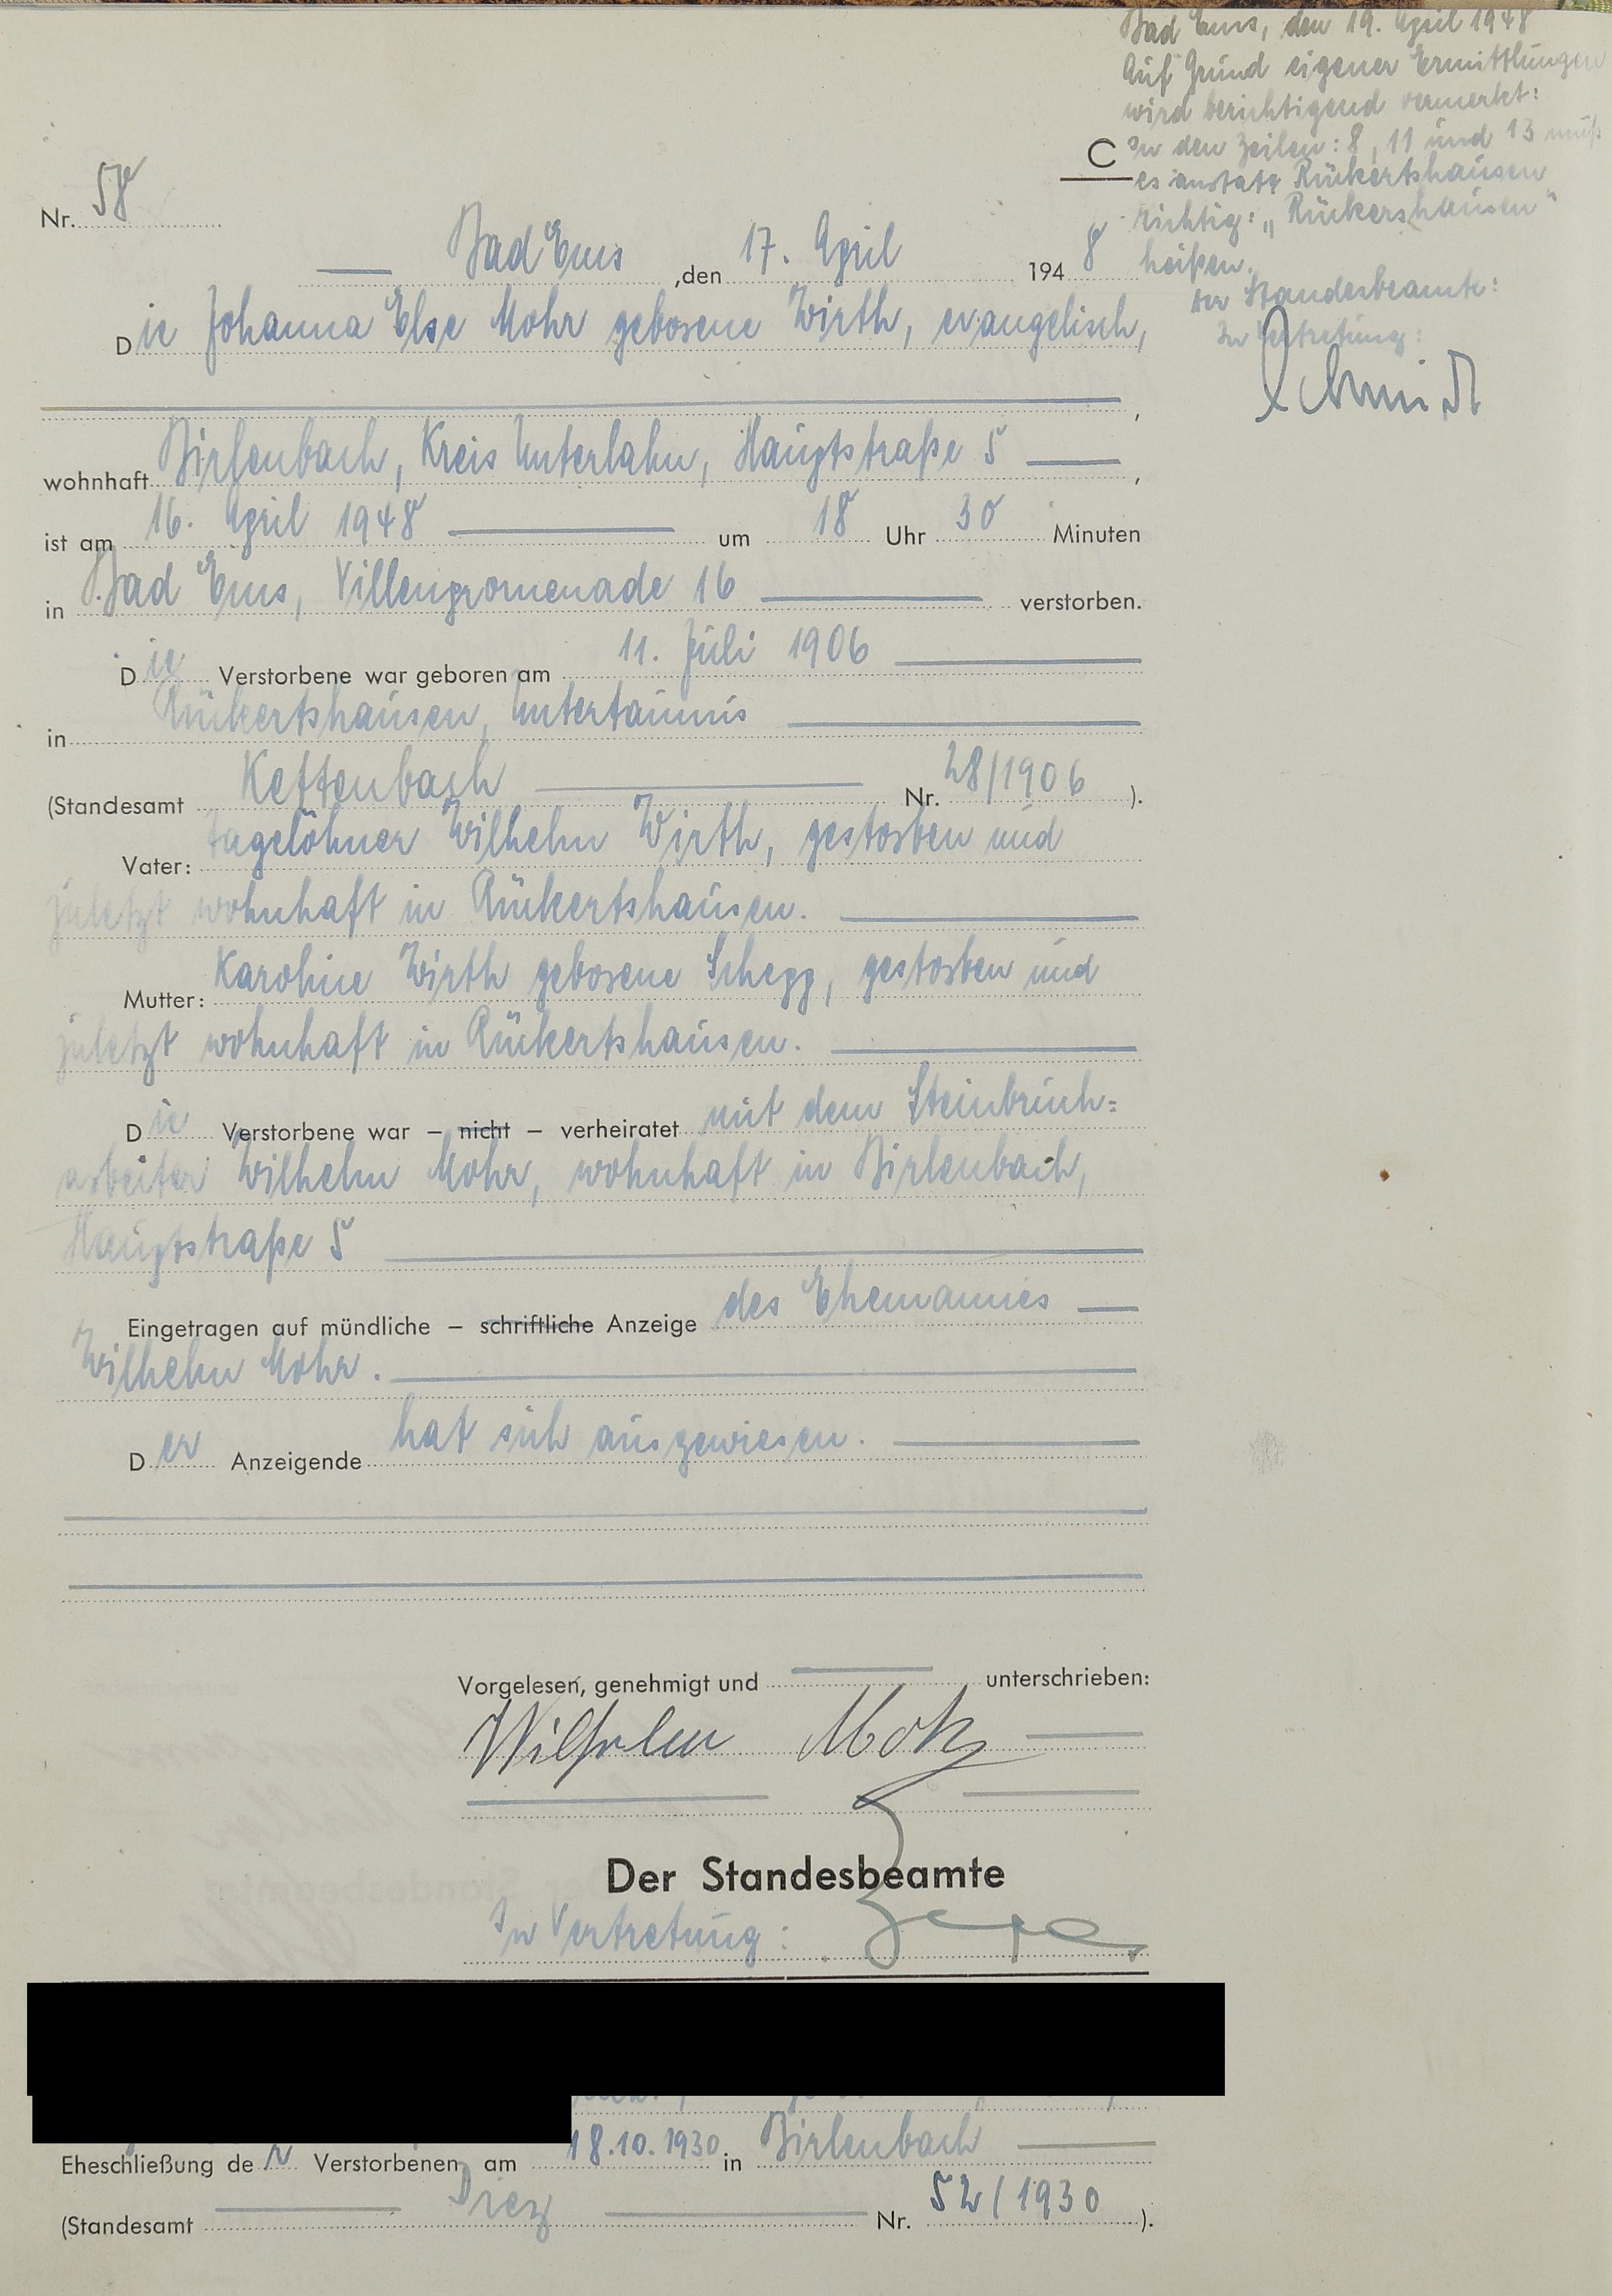 Bad Ems, den 19. April 1948
Auf Grund eigener Ermittlungen
wird berichtigend vermerkt:
In den Zeilen: 8, 11 und 13 muß
es anstatt Rückertshausen
richtig: „Rückershausen"
heißen.
Der Standesbeamte:
In Vertretung:
Schmidt
C
Nr. 58
Bad Ems, den 17. April 1948
Die Johanna Else Mohr geborene Wirth, evangelisch,
,
wohnhaft Birlenbach, Kreis Unterlahn, Hauptstraße 5 ,
ist am 16. April 1948 um 18 Uhr 30 Minuten
in Bad Ems, Villenpromenade 16 verstorben.
Die Verstorbene war geboren am 11. Juli 1906
in Rückertshausen, Untertaunus
(Standesamt Kettenbach Nr. 28/1906 ).
Vater: Tagelöhner Wilhelm Wirth, gestorben und
zuletzt wohnhaft in Rückertshausen.
Mutter: Karoline Wirth geborene Schepp, gestorben und
zuletzt wohnhaft in Rückertshausen.
Die Verstorbene war – nicht – verheiratet mit dem Steinbruch=
arbeiter Wilhelm Mohr, wohnhaft in Birlenbach,
Hauptstraße 5
Eingetragen auf mündliche – schriftliche Anzeige des Ehemannes
Wilhelm Mohr.
Der Anzeigende hat sich ausgewiesen.
Vorgelesen, genehmigt und unterschrieben:
Wilhelm Mohr
Der Standesbeamte
In Vertretung:
Eheschließung der Verstorbenen am 18.10.1930 in Birlenbach
(Standesamt Diez Nr. 52/1930 ).